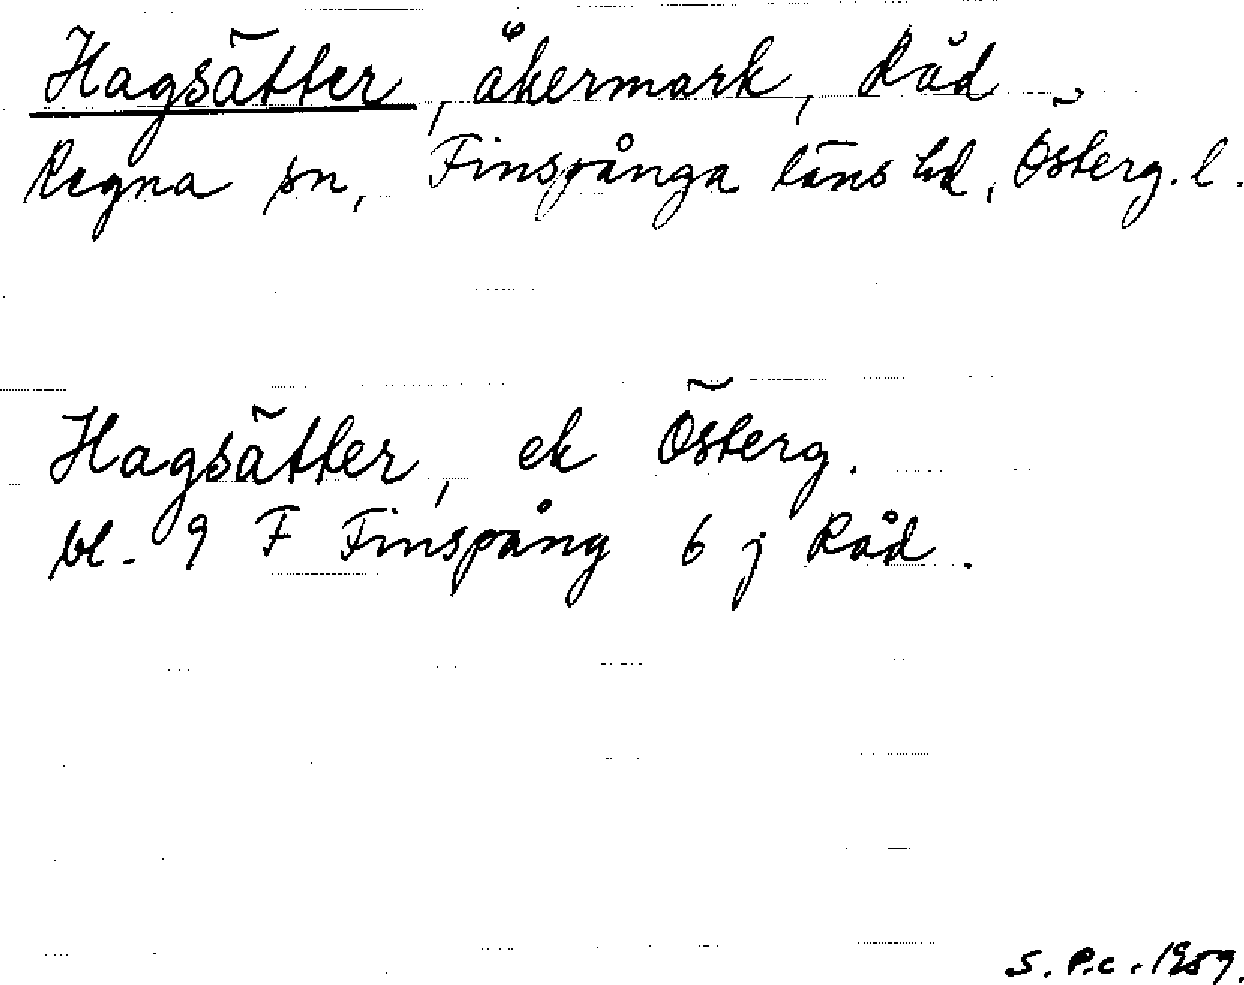 Hagsätter, åkermark, Råd
Regna sn, Finspånga läns hd, Österg. l.
Hagsätter, ek Österg.
bl. 9 F Finspång 6 j Råd.
S.P.c. 1959.